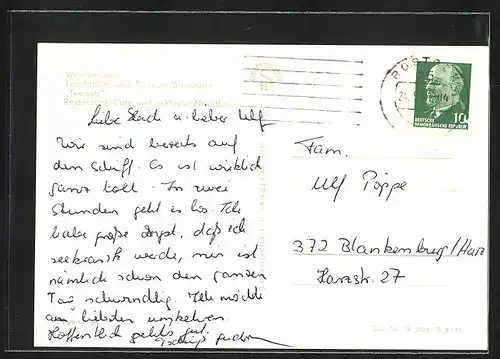 Warnemünde
Leuchtturm und
"Teepott"
Restaurant, Café und
Liebe u. lieber Ulf
Wir sind bereits auf
dem Schiff. Es ist wirklich
ganz toll. In zwei
Stunden geht es los. Ich
habe große Angst, daß ich
seekrank werde, mir ist
nämlich schon den ganzen
Tag schwindlig. Ich möchte
am liebsten umkehren.
Hoffentlich gehts gut.
ROSTOCK
10
DEUTSCHE
DEMOKRATISCHE REPUBLIK
Fam.
Ulf Pöppe
372 Blankenburg/Harz
Harzstr. 27